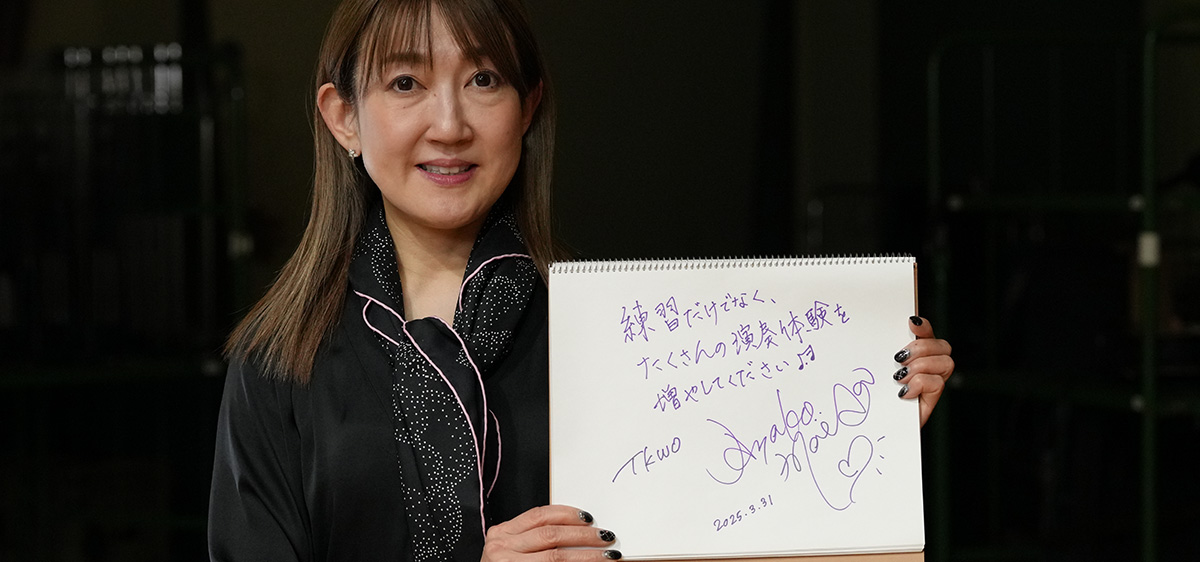 練習だけでなく、
たくさんの演奏体験を
増やしてください♪
TKWO
Ayako.
Maeda
2025.3.31